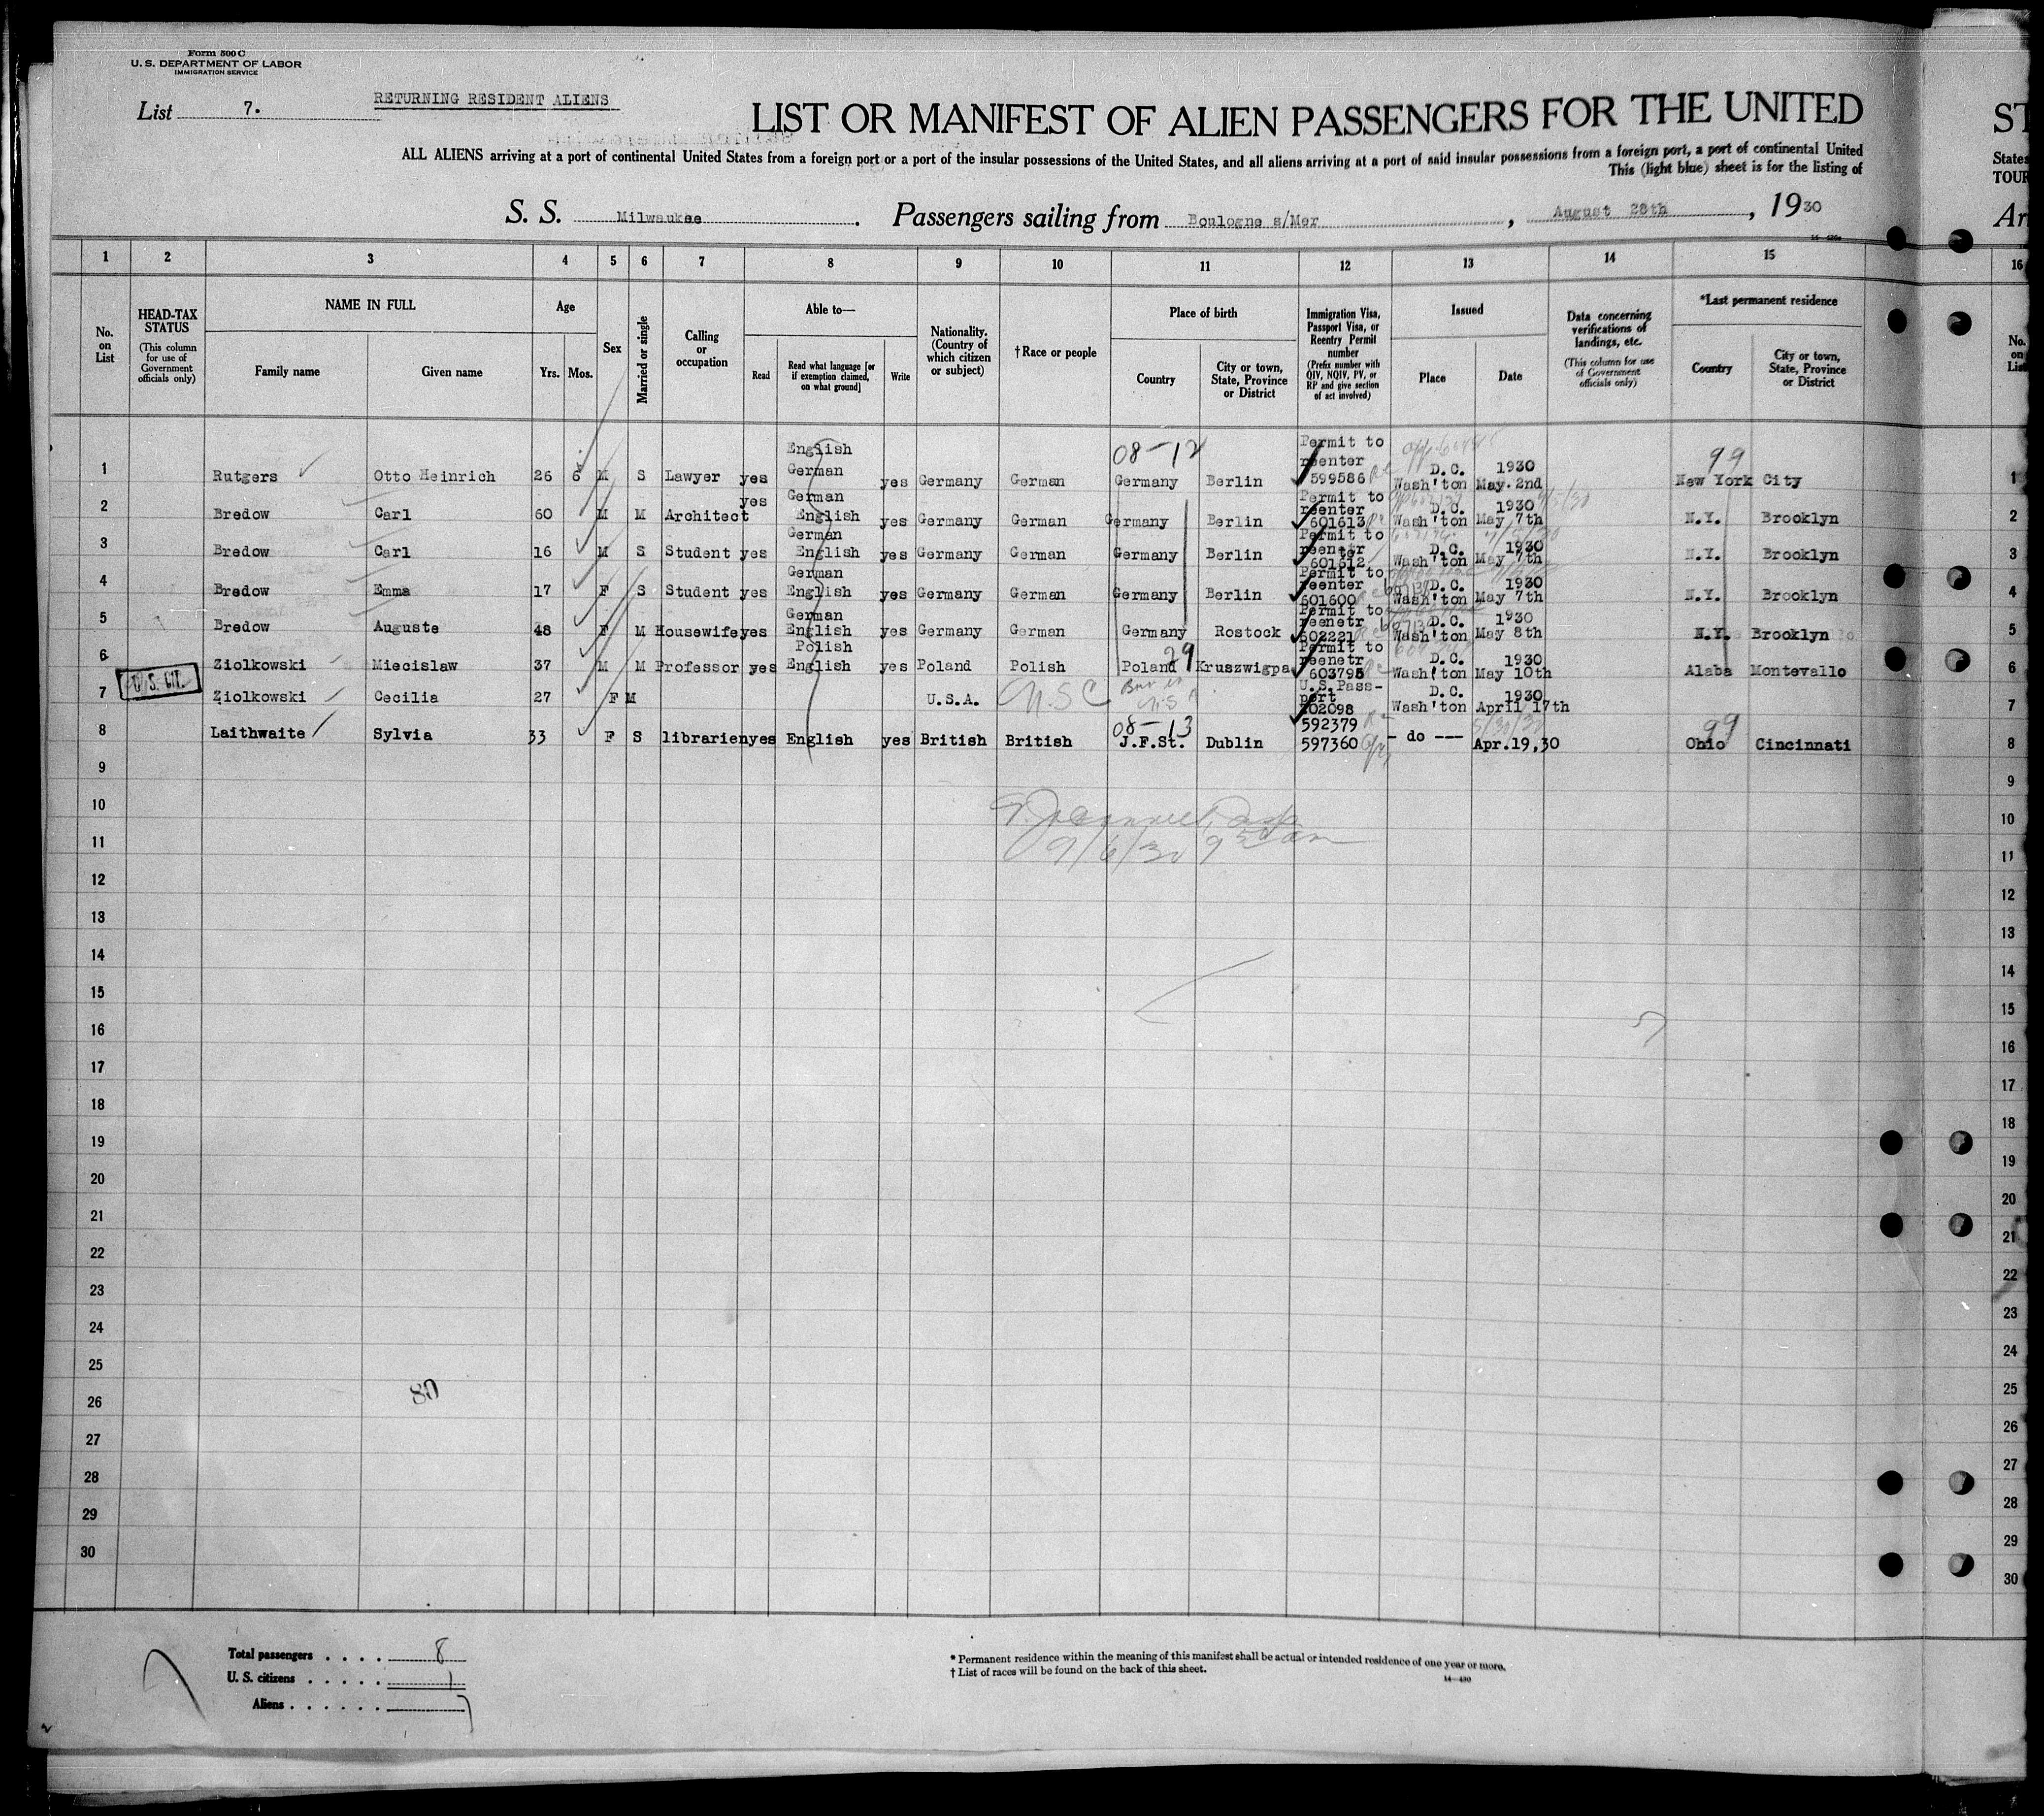 Form 500 C
U. S. DEPARTMENT OF LABOR
IMMIGRATION SERVICE
List 7.
RETURNING RESIDENT ALIENS
LIST OR MANIFEST OF ALIEN PASSENGERS FOR THE UNITED
ST
ALL ALIENS arriving at a port of continental United States from a foreign port or a port of the insular possessions of the United States, and all aliens arriving at a port of said insular possessions from a foreign port, a port of continental United
States
This (light blue) sheet is for the listing of
TOUR
S. S. Milwaukee. Passengers sailing from Boulogne s/Mer, August 28th, 1930
Ar
1 2 3 4 5 6 7 8 9 10 11 12 13 14 15 16
No. on List
HEAD-TAX STATUS
(This column for use of Government officials only)
NAME IN FULL
Family name Given name
Age
Yrs. Mos.
Sex
Married or single
Calling or occupation
Able to—
Read
Read what language [or if exemption claimed, on what ground]
Write
Nationality. (Country of which citizen or subject)
†Race or people
Place of birth
Country
City or town, State, Province or District
Immigration Visa, Passport Visa, or Reentry Permit number
(Prefix number with QIV, NQIV, PV, or RP and give section of act involved)
Issued
Place Date
Data concerning verifications of landings, etc.
(This column for use of Government officials only)
*Last permanent residence
Country
City or town, State, Province or District
No. on List
English 08-12 Permit to
1 German reenter D.C. 1930 99
Rutgers Otto Heinrich 26 6 M S Lawyer yes yes Germany German Germany Berlin 599586 Wash'ton May. 2nd New York City 1
2 yes German Permit to reenter D.C. 1930
Bredow Carl 60 M M Architect English yes Germany German Germany Berlin 601613 Wash'ton May 7th N.Y. Brooklyn 2
3 German Permit to reenetr D.C. 1930
Bredow Carl 16 M S Student yes English yes Germany German Germany Berlin 601612 Wash'ton May 7th N.Y. Brooklyn 3
4 German Permit to reenter D.C. 1930
Bredow Emma 17 F S Student yes English yes Germany German Germany Berlin 601600 Wash'ton May 7th N.Y. Brooklyn 4
5 German Permit to reenetr D.C. 1930
Bredow Auguste 48 F M Housewife yes English yes Germany German Germany Rostock 602221 Wash'ton May 8th N.Y. Brooklyn 5
6 Polish Permit to reenetr D.C. 1930
Ziolkowski Miecislaw 37 M M Professor yes English yes Poland Polish Poland 29 Kruszwigpa 603795 Wash'ton May 10th Alaba Montevallo 6
U. S. CIT.
7 U.S. Pass-port D.C. 1930
Ziolkowski Cecilia 27 F M U.S.A. U.S.C Born in U.S.A 102098 Wash'ton April 17th 7
8 08-13 592379 99
Laithwaite Sylvia 33 F S librarien yes English yes British British J.F.St. Dublin 597360 - do --- Apr.19,30 Ohio Cincinnati 8
9 9
10 10
9/6/30 9 30 am
11 11
12 12
13 13
14 14
15 15
16 16
17 17
18 18
19 19
20 20
21 21
22 22
23 23
24 24
25 25
80
26 26
27 27
28 28
29 29
30 30
Total passengers . . . . 8
U. S. citizens . . . . . 1
Aliens . . . . . . 7
* Permanent residence within the meaning of this manifest shall be actual or intended residence of one year or more.
† List of races will be found on the back of this sheet.
14—430